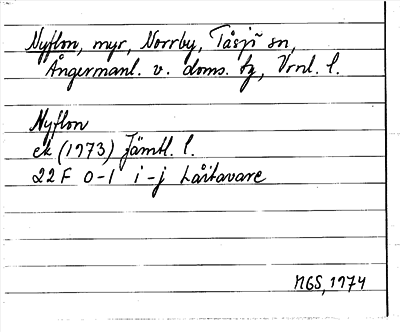 Nyflon, myr, Norrby, Tåsjö sn,
Ångermanl. v. doms. fg, Vrnl. l.
Nyflon
ek (1973) Jämtl. l.
22F 0-1 i-j Låitavare
NGS, 1974